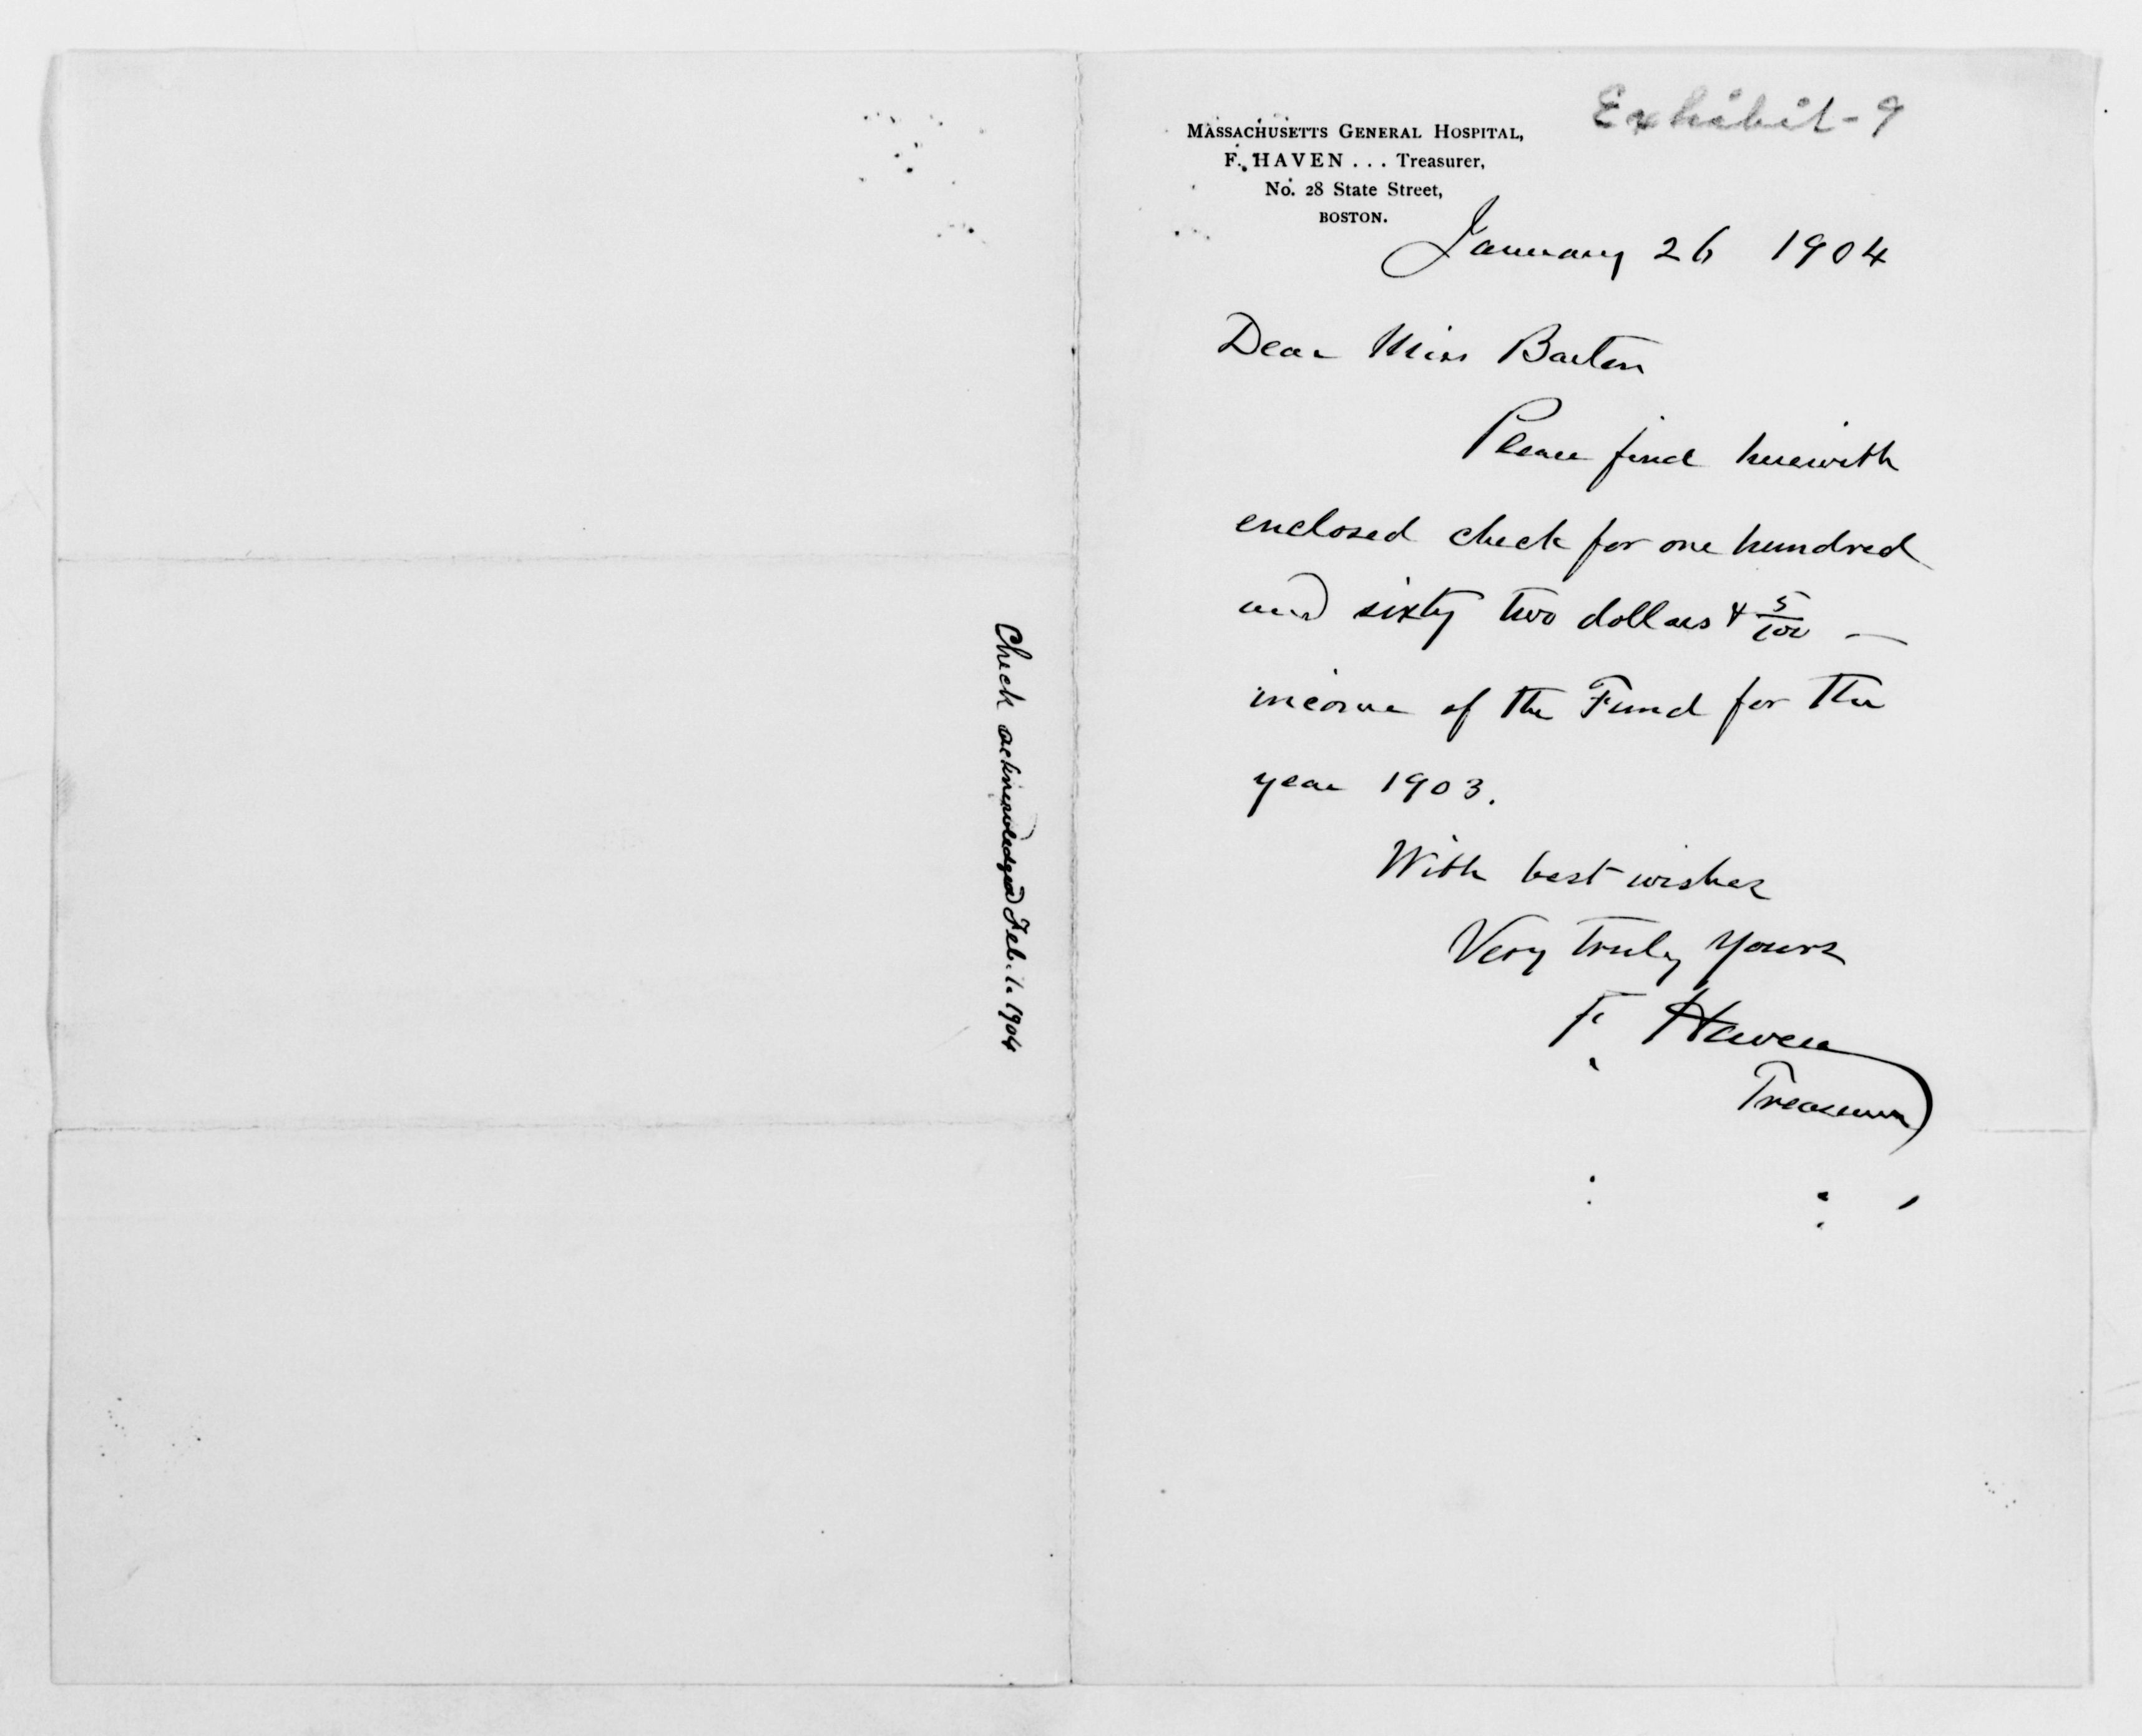 Check acknowledged Feb. 1. 1904
Exhibit - 9
MASSACHUSETTS GENERAL HOSPITAL,
F. HAVEN . . . Treasurer,
No. 28 State Street,
BOSTON.
January 26 1904
Dear Miss Barton
Please find herewith
enclosed check for one hundred
and sixty two dollars & 5/100 —
income of the Fund for the
year 1903.
With best wishes
Very truly yours
F. Haven
Treasurer